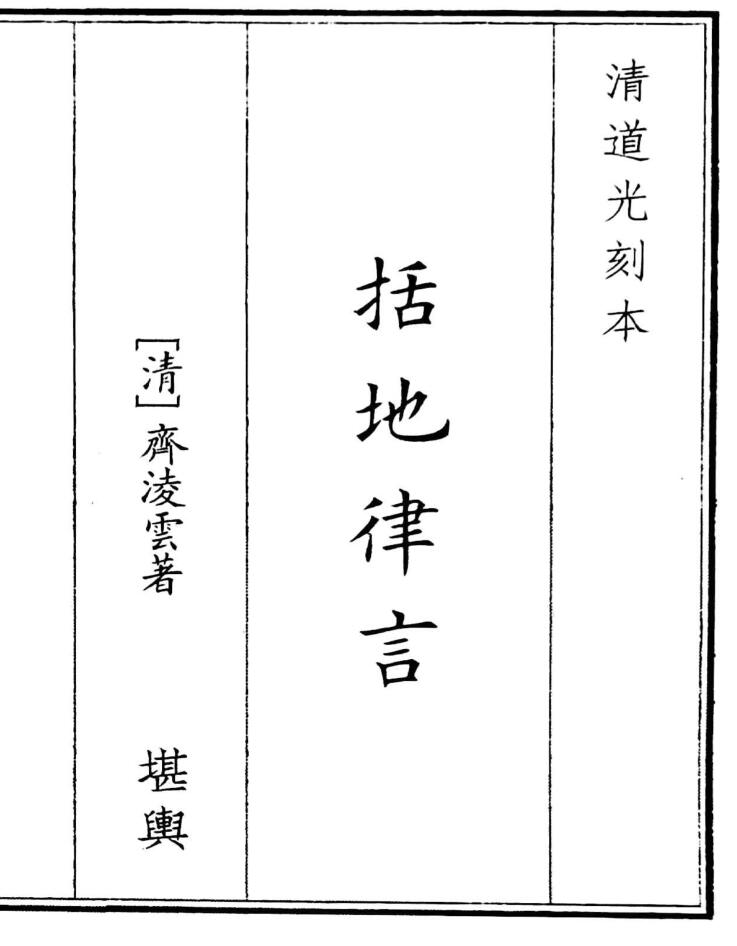 清道光刻本
括地律言
[清]齊淩雲著 堪輿